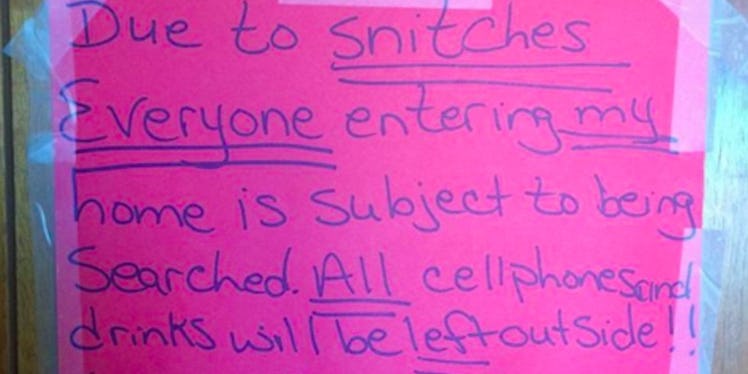 Due to snitches
Everyone entering my
home is subject to being
Searched. All cellphones and
drinks will be left outside!!